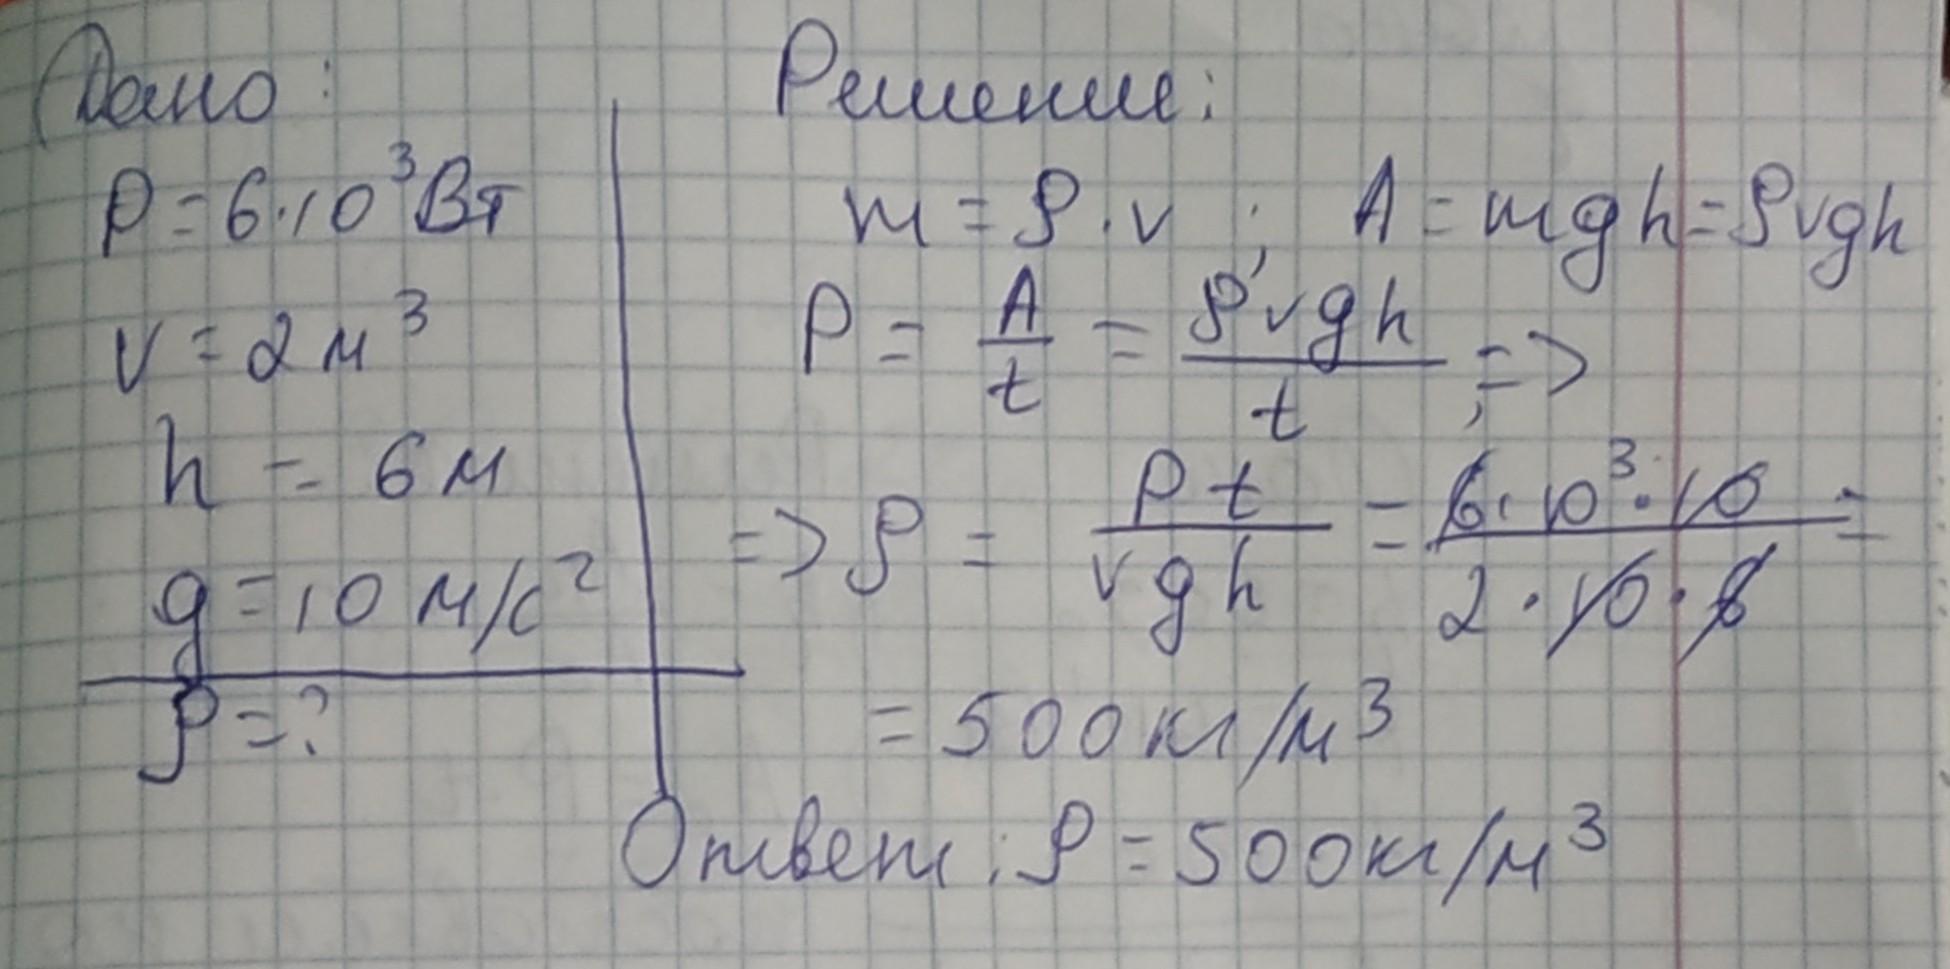 Дано:
P = 6·10³ Вт
v = 2 м³
h = 6 м
g = 10 м/с²
ρ = ?
Решение:
m = ρ · v ; A = mgh = ρvgh
P = A/t = ρvgh/t ; =>
=> ρ = Pt/vgh = 6·10³·10/2·10·6 =
= 500 кг/м³
Ответ: ρ = 500 кг/м³